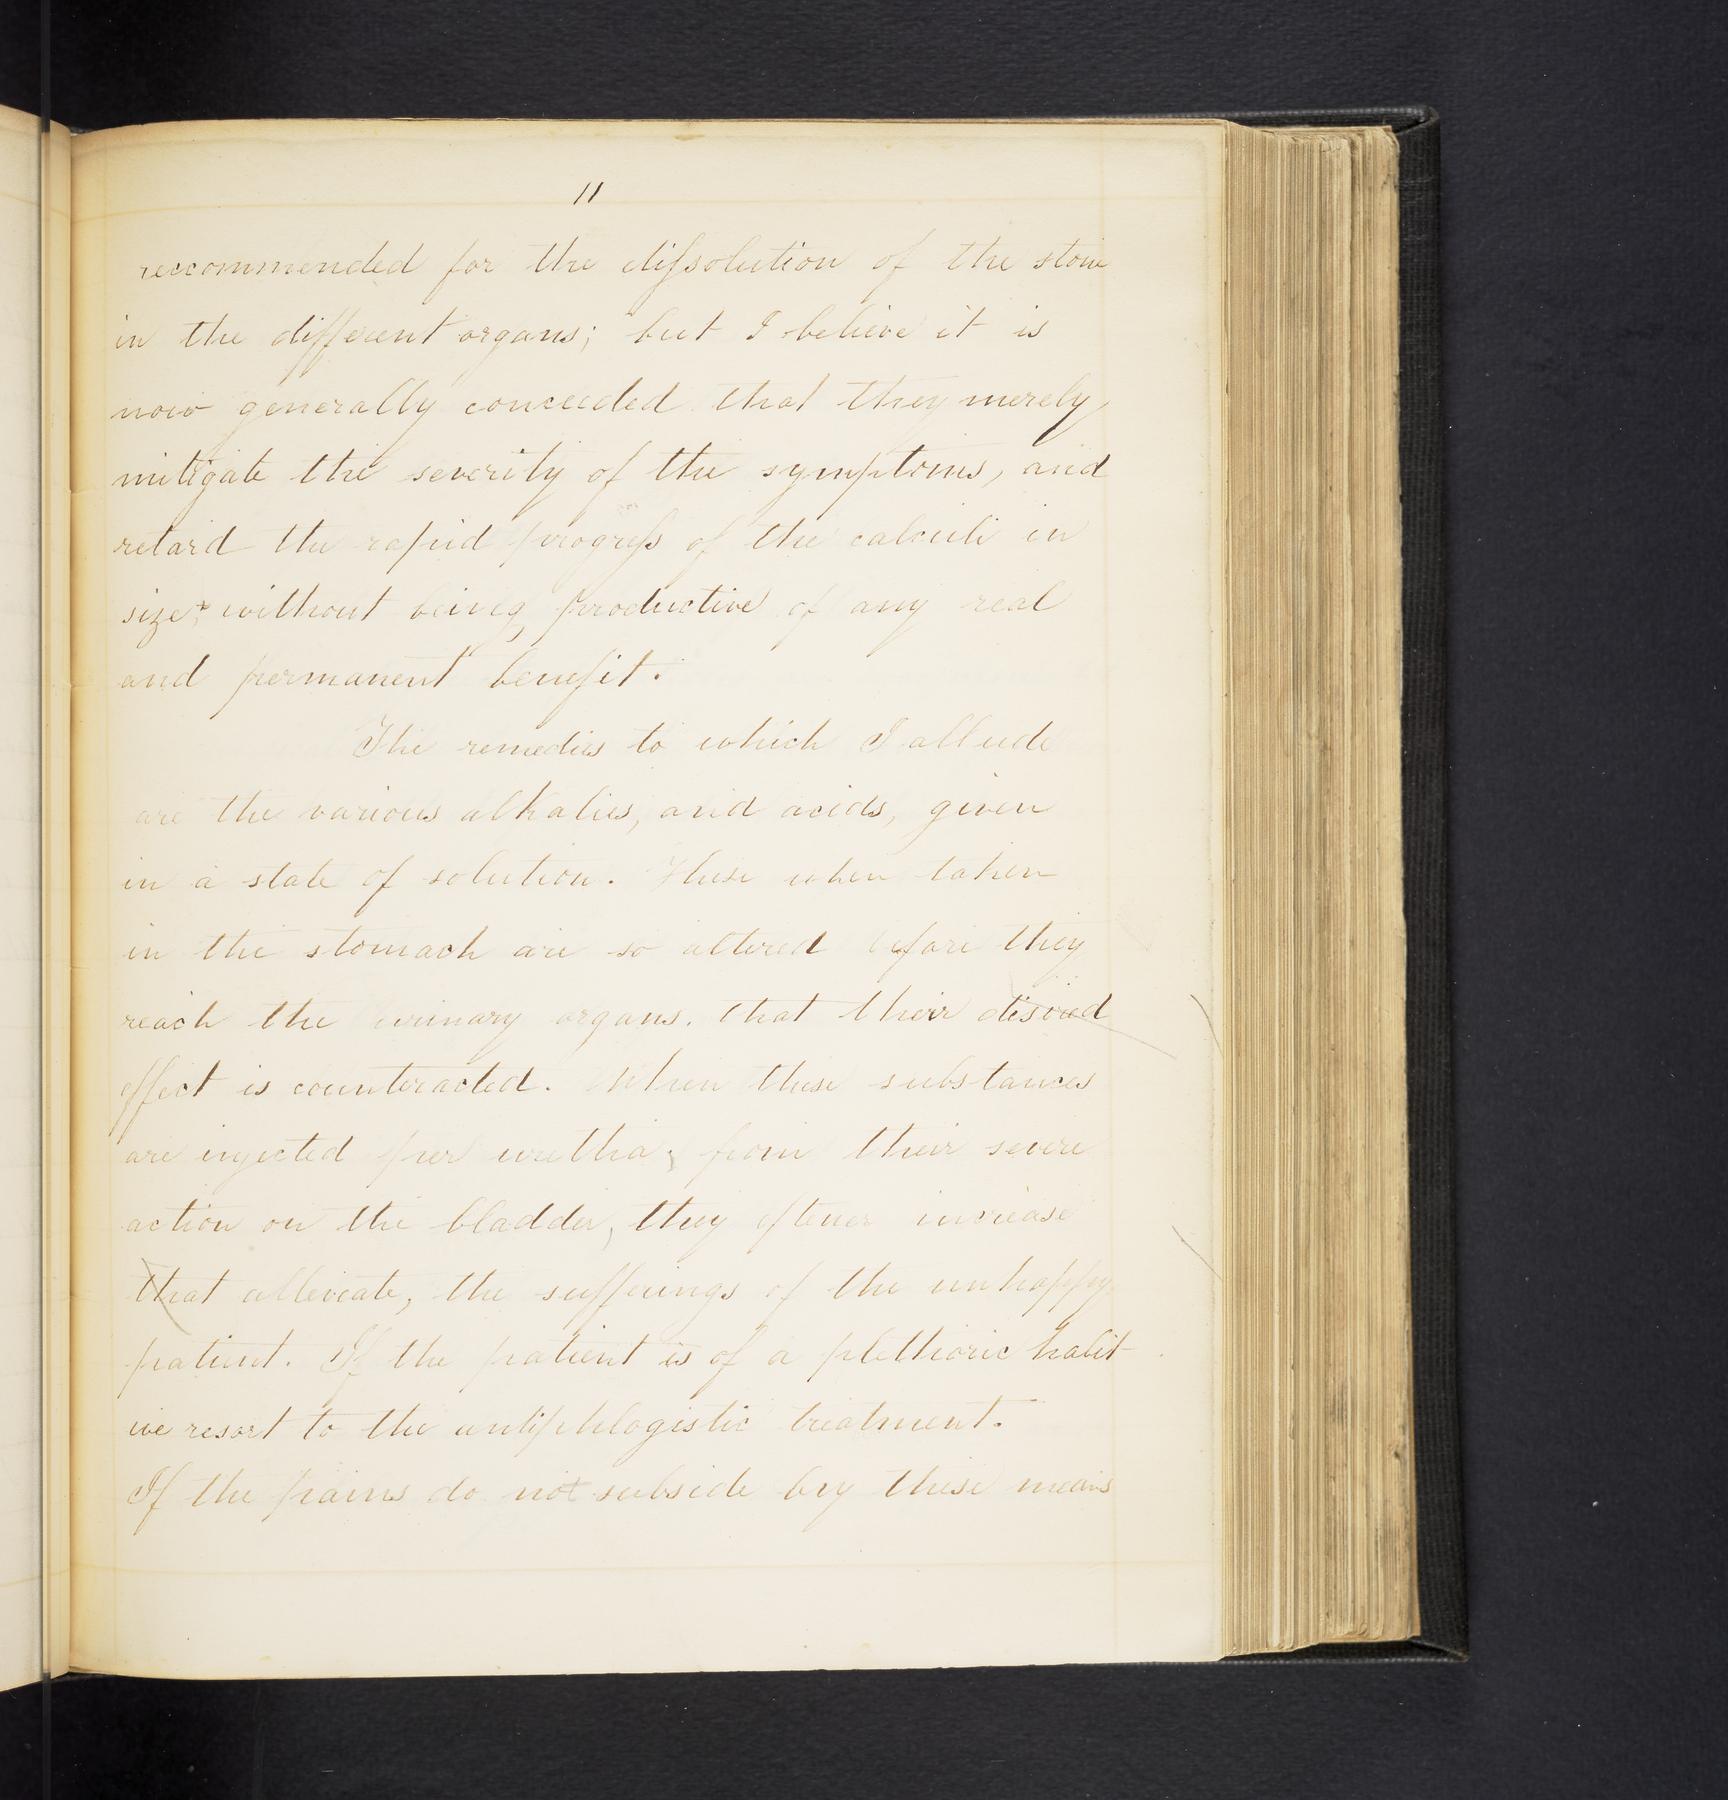 11
reccommended for the dissolution of the stone
in the different organs; but I believe it is
now generally conceeded that they merely
mitigate the severity of the symptoms, and
retard the rapid progress of the calculi in
size, without being productive of any real
and permanent benefit.
The remedies to which I allude
are the various alkalies, and acids, given
in a state of solution. These when taken
in the stomach are so altered before they
reach the urinary organs. that their disired
effect is counteracted. When these substances
are injected per urethra, from their severe
action on the bladder, they oftener increase
that alleviate, the sufferings of the unhappy
patient. If the patient is of a plethoric habit
we resort to the antiphlogistic treatment.
If the pains do not subside by these means